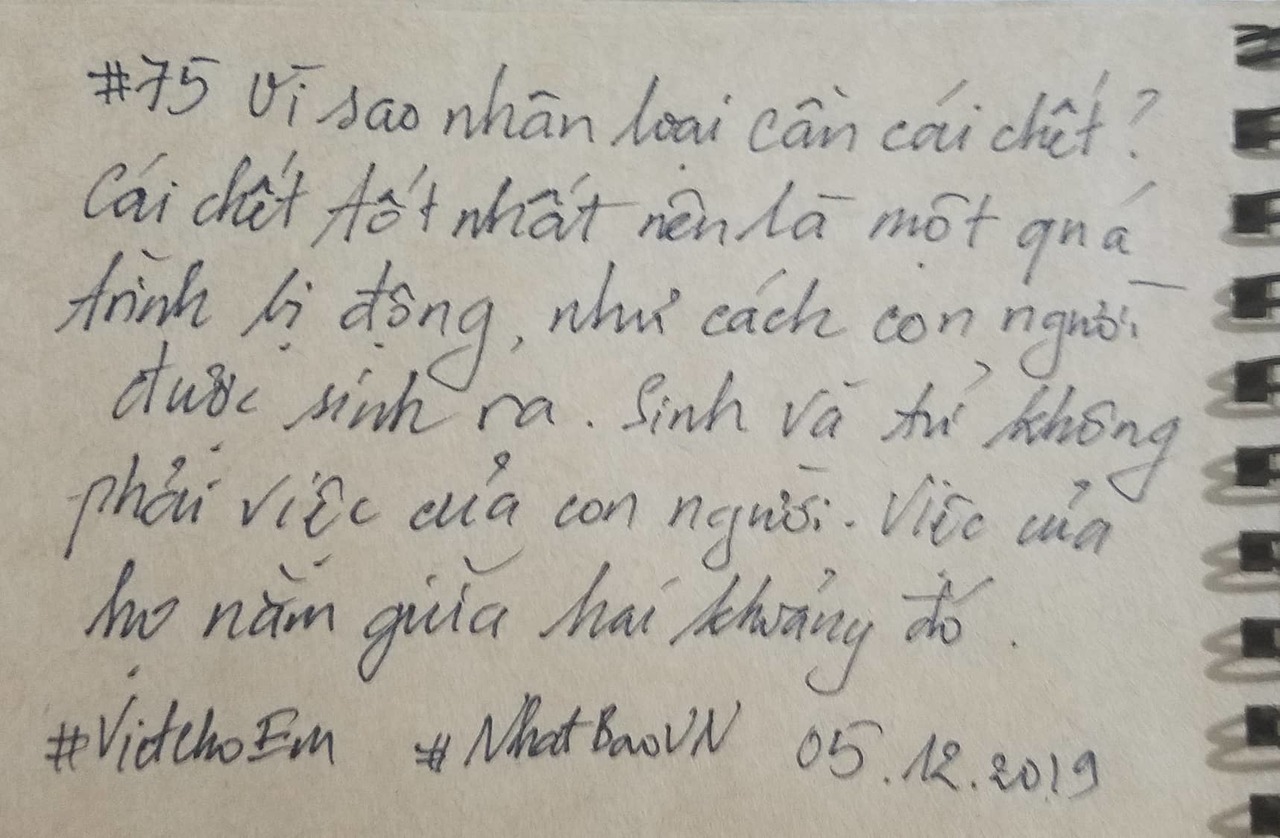 #75 Vì sao nhân loại cần cái chết?
Cái chết tốt nhất nên là một quá
trình bị động, như cách con người
được sinh ra. Sinh và tử không
phải việc của con người. Việc của
họ nằm giữa hai khoảng đó.
#VietchoEm #NhatBaoVN 05.12.2019